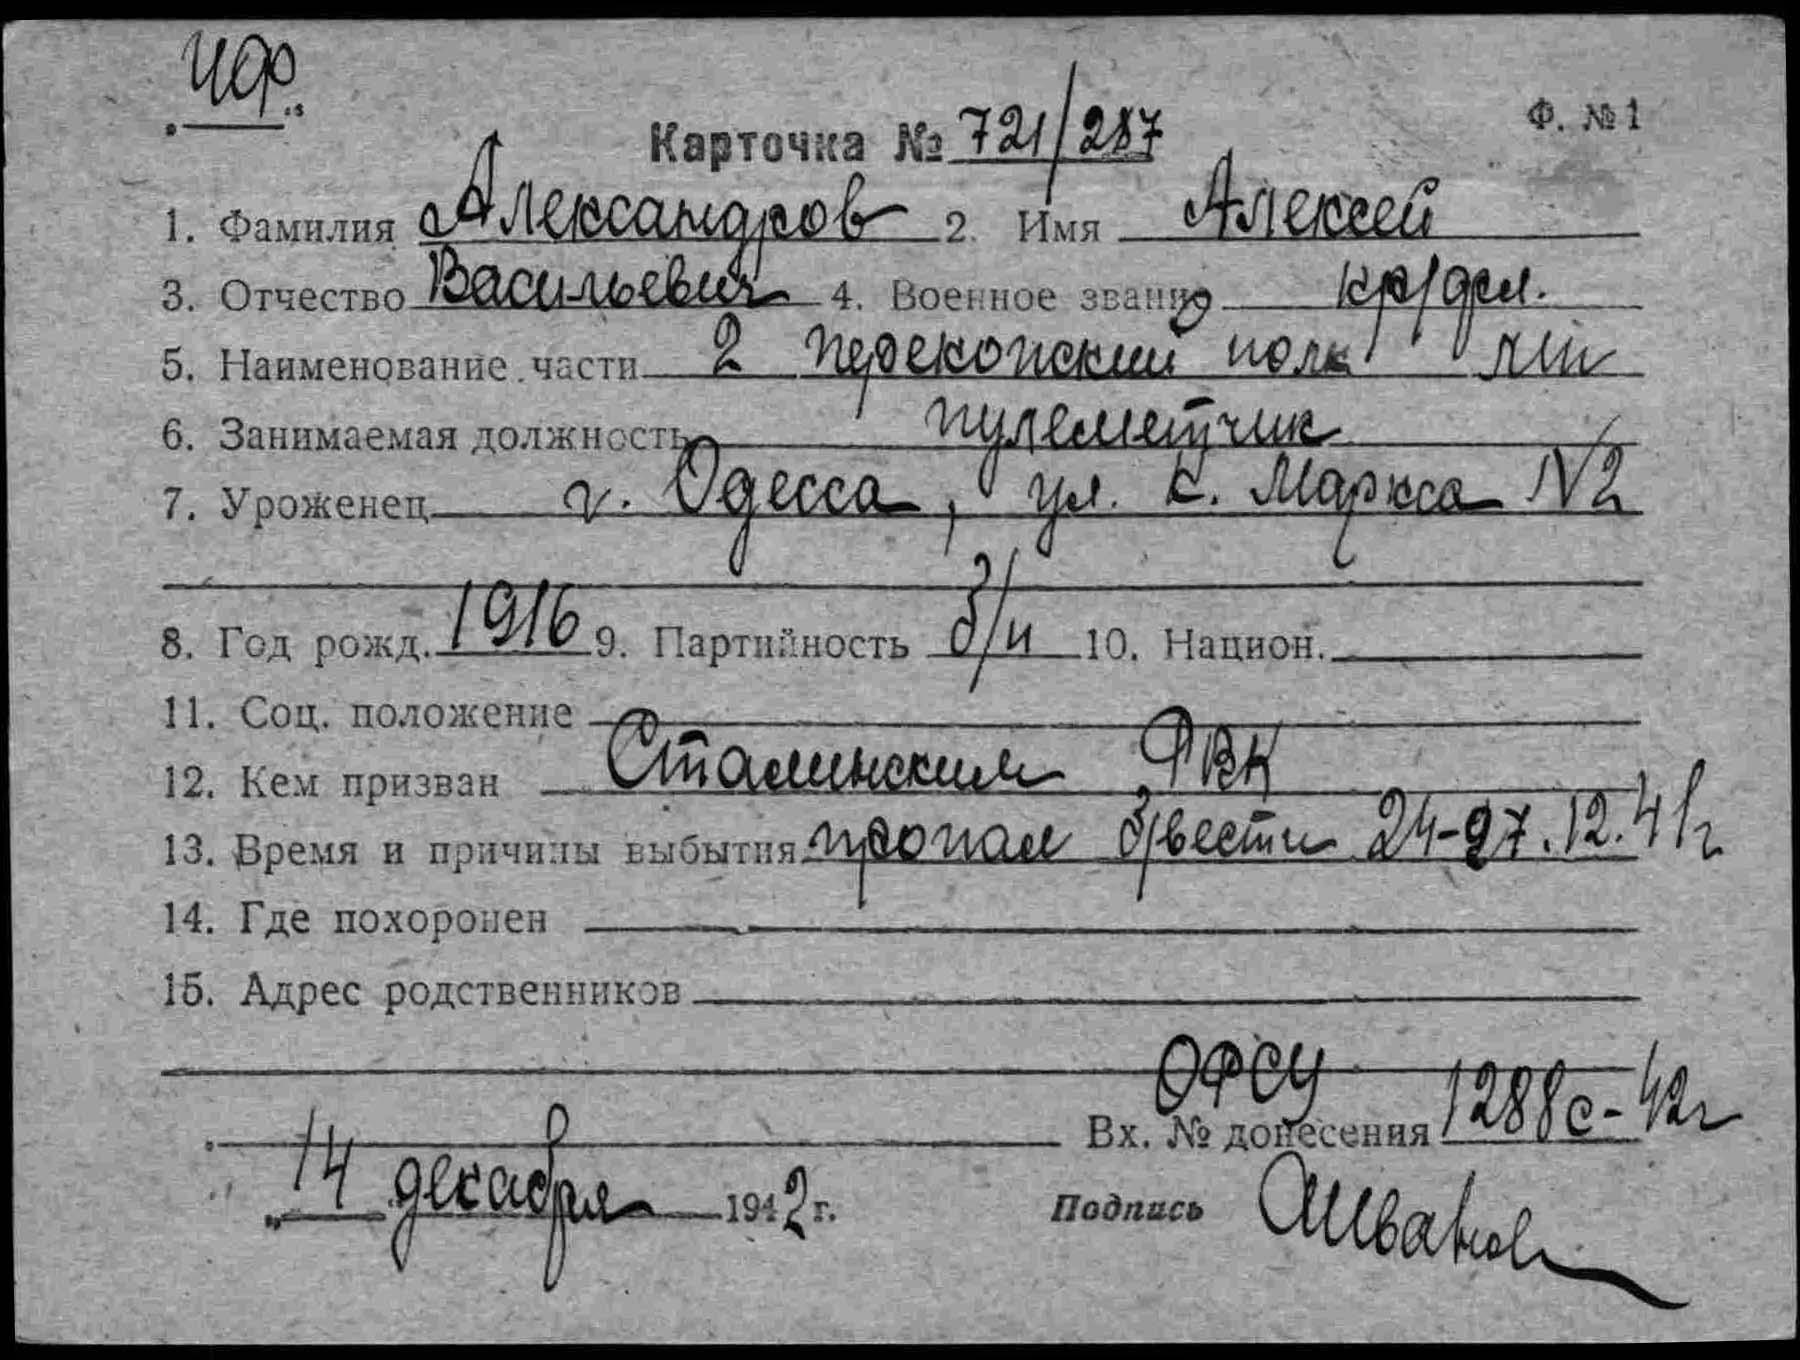 ЧФ
Ф. №1
Карточка № 721/287
1. Фамилия Александров 2. Имя Алексей
3. Отчество Васильевич 4. Военное звание кр/фл.
5. Наименование части 2 перекопский полк
6. Занимаемая должность пулеметчик
7. Уроженец г. Одесса, ул. К. Маркса N2
8. Год рожд. 1916 9. Партийность б/п 10. Национ.
11. Соц. положение
12. Кем призван Сталинским РВК
13. Время и причины выбытия пропал б/вести 24-27.12.41г
14. Где похоронен
15. Адрес родственников
ОФСУ
Вх. № донесения 1288с-42г
„ 14 декабря 1942 г.
Подпись